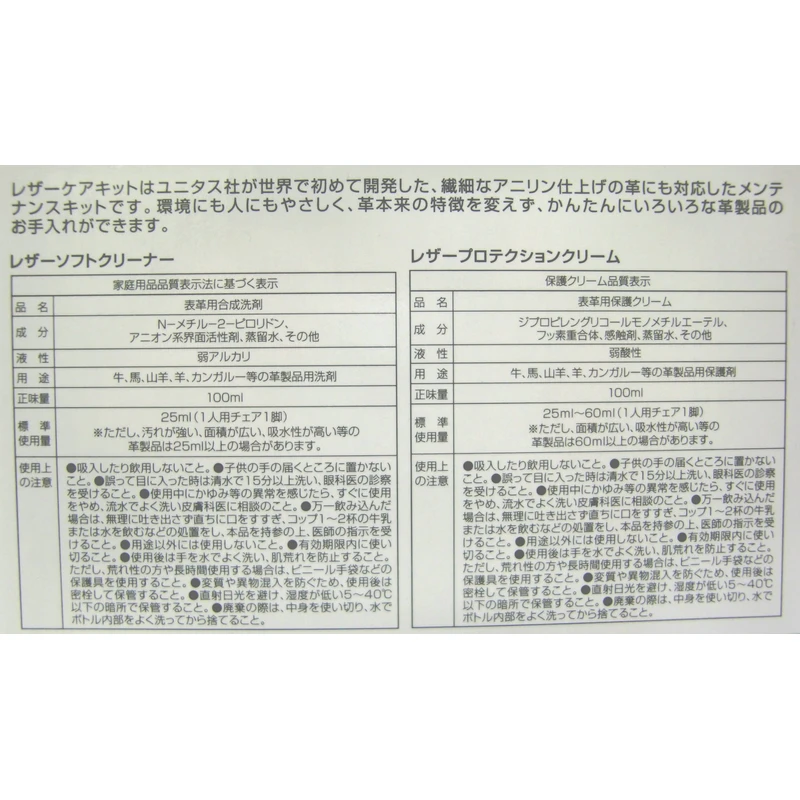 レザーケアキットはユニタス社が世界で初めて開発した、繊細なアニリン仕上げの革にも対応したメンテ
ナンスキットです。環境にも人にもやさしく、革本来の特徴を変えず、かんたんにいろいろな革製品の
お手入れができます。
レザーソフトクリーナー
家庭用品品質表示法に基づく表示
品名 表革用合成洗剤
成分 N−メチル−2−ピロリドン、
アニオン系界面活性剤、蒸留水、その他
液性 弱アルカリ
用途 牛、馬、山羊、羊、カンガルー等の革製品用洗剤
正味量 100ml
標準使用量 25ml(1人用チェア1脚)
※ただし、汚れが強い、面積が広い、吸水性が高い等の
革製品は25ml以上の場合があります。
使用上の注意 ●吸入したり飲用しないこと。●子供の手の届くところに置かない
こと。●誤って目に入った時は清水で15分以上洗い、眼科医の診察
を受けること。●使用中にかゆみ等の異常を感じたら、すぐに使用
をやめ、流水でよく洗い皮膚科医に相談のこと。●万一飲み込んだ
場合は、無理に吐き出さず直ちに口をすすぎ、コップ1〜2杯の牛乳
または水を飲むなどの処置をし、本品を持参の上、医師の指示を受
けること。●用途以外には使用しないこと。●有効期限内に使い
切ること。●使用後は手を水でよく洗い、肌荒れを防止すること。
ただし、荒れ性の方や長時間使用する場合は、ビニール手袋などの
保護具を使用すること。●変質や異物混入を防ぐため、使用後は
密栓して保管すること。●直射日光を避け、湿度が低い5〜40℃
以下の暗所で保管すること。●廃棄の際は、中身を使い切り、水で
ボトル内部をよく洗ってから捨てること。
レザープロテクションクリーム
保護クリーム品質表示
品名 表革用保護クリーム
成分 ジプロピレングリコールモノメチルエーテル、
フッ素重合体、感触剤、蒸留水、その他
液性 弱酸性
用途 牛、馬、山羊、羊、カンガルー等の革製品用保護剤
正味量 100ml
標準使用量 25ml〜60ml(1人用チェア1脚)
※ただし、汚れが強い、面積が広い、吸水性が高い等の
革製品は60ml以上の場合があります。
使用上の注意 ●吸入したり飲用しないこと。●子供の手の届くところに置かない
こと。●誤って目に入った時は清水で15分以上洗い、眼科医の診察
を受けること。●使用中にかゆみ等の異常を感じたら、すぐに使用
をやめ、流水でよく洗い皮膚科医に相談のこと。●万一飲み込んだ
場合は、無理に吐き出さず直ちに口をすすぎ、コップ1〜2杯の牛乳
または水を飲むなどの処置をし、本品を持参の上、医師の指示を受
けること。●用途以外には使用しないこと。●有効期限内に使い
切ること。●使用後は手を水でよく洗い、肌荒れを防止すること。
ただし、荒れ性の方や長時間使用する場合は、ビニール手袋などの
保護具を使用すること。●変質や異物混入を防ぐため、使用後は
密栓して保管すること。●直射日光を避け、湿度が低い5〜40℃
以下の暗所で保管すること。●廃棄の際は、中身を使い切り、水で
ボトル内部をよく洗ってから捨てること。